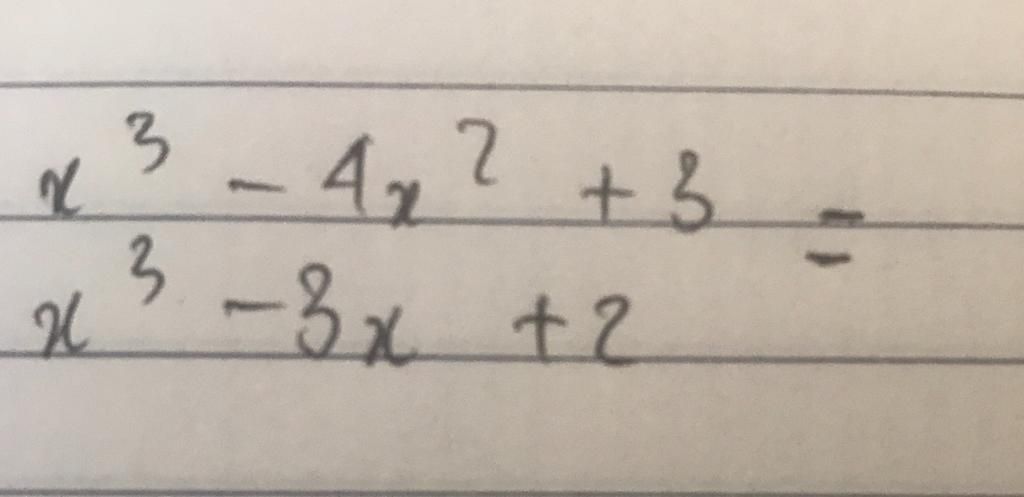 x³ - 4x² + 3 =
x³ - 3x + 2